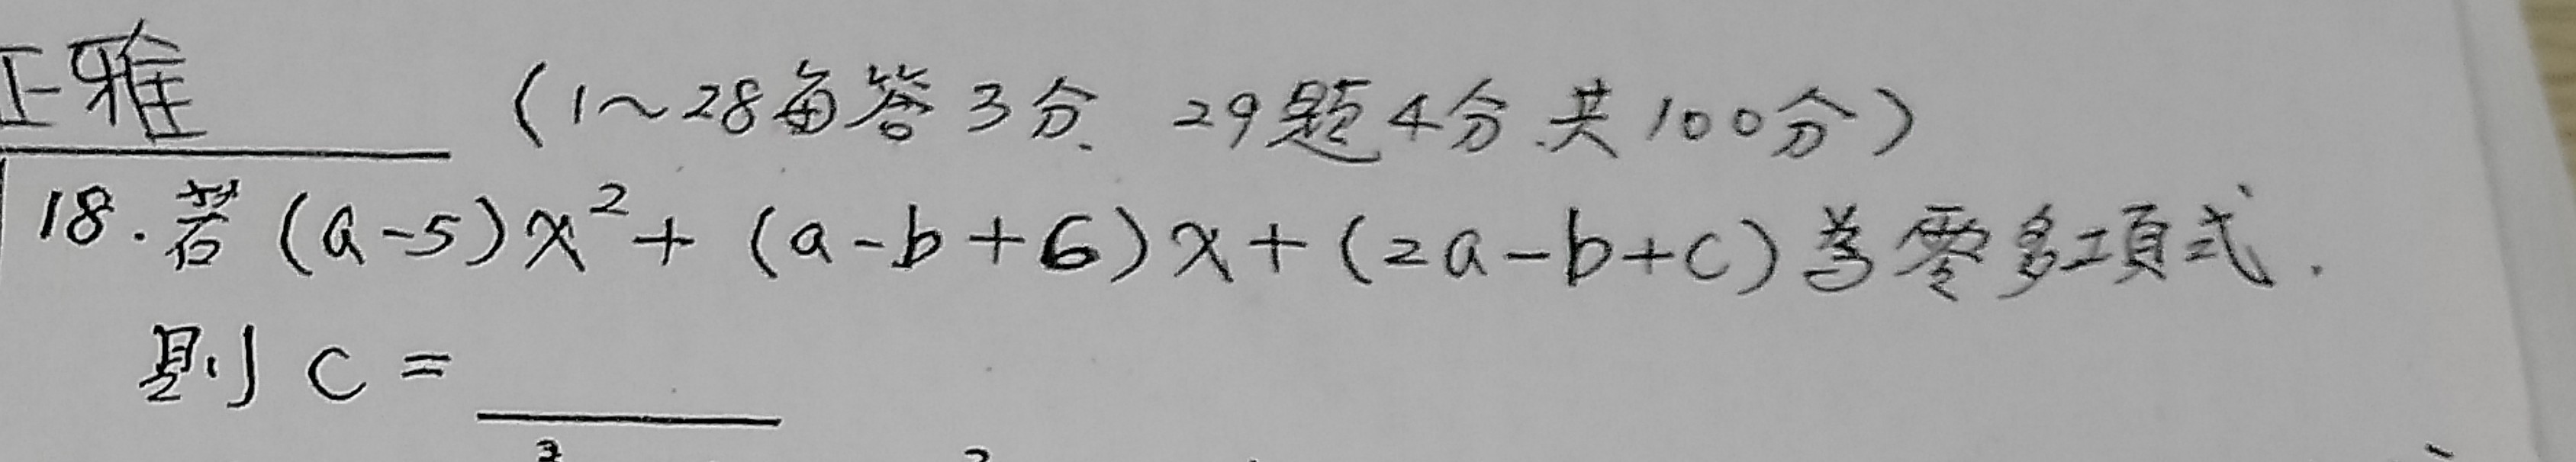 正雅
(1~28每答3分、29題4分.共100分)
18.若(a-5)x²+(a-b+6)x+(2a-b+c)為零多項式.
則 c = ______